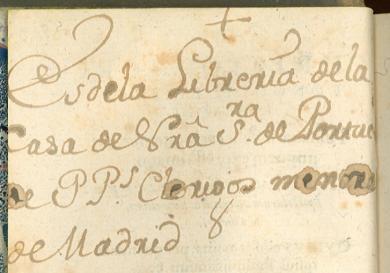 Es de la Libreria de la
Casa de Nrã S.ra de Portue
de P P.s Clerigos menore
de Madrid